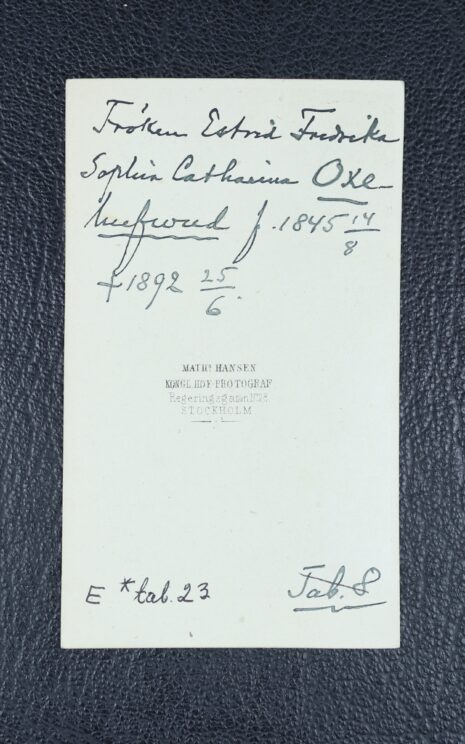 Fröken Estrid Fredrika
Sophia Catharina Oxe-
hufwud f. 1845 14/8
+ 1892 25/6.
MATHS HANSEN
KONGL. HOF-PHOTOGRAF
Regeringsgatan
STOCKHOLM
E *tab. 23
Tab. 8